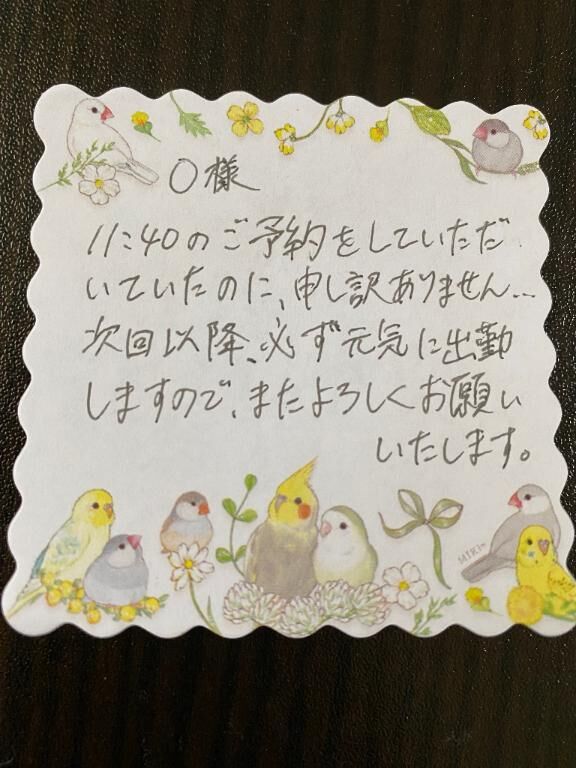 O様
11:40のご予約をしていただ
いていたのに、申し訳ありません...
次回以降、必ず元気に出勤
しますので、またよろしくお願い
いたします。